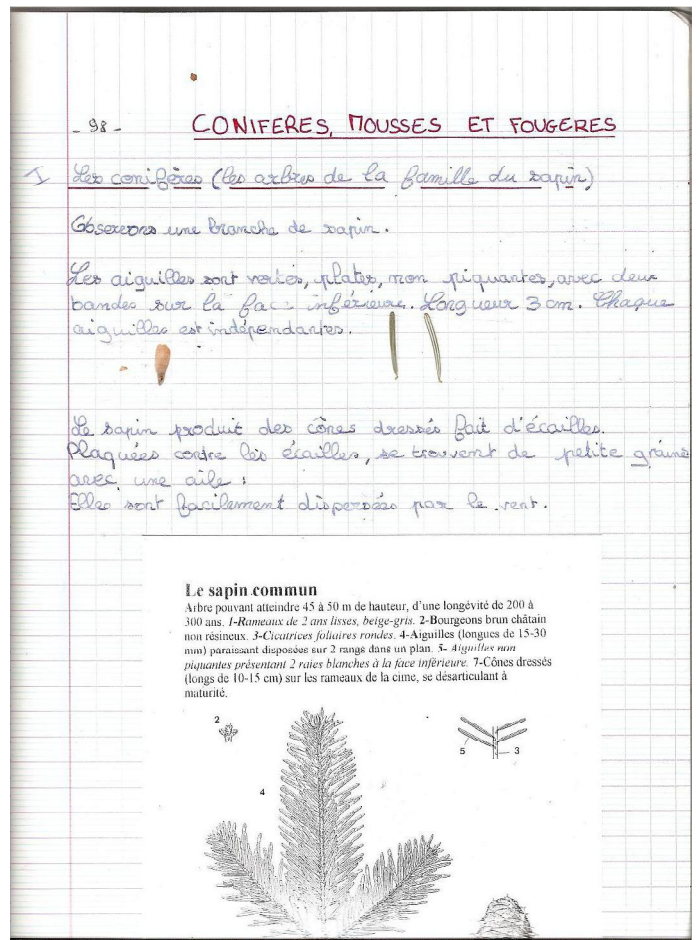 - 98 -
CONIFERES, MOUSSES ET FOUGERES
1 Les conifères (les arbres de la famille du sapin)
Observons une branche de sapin.
Les aiguilles sont vertes, plates, non piquantes, avec deux
bandes sur la face inférieure. Longueur 3 cm. Chaque
aiguilles est indépendantes.
Le sapin produit des cônes dressés fait d'écailles.
Plaquées contre les écailles, se trouvent de petite graine
avec une aile :
Elles sont facilement dispersées par le vent.
Le sapin commun
Arbre pouvant atteindre 45 à 50 m de hauteur, d'une longévité de 200 à
300 ans. 1-Rameaux de 2 ans lisses, beige-gris. 2-Bourgeons brun châtain
non résineux. 3-Cicatrices foliaires rondes. 4-Aiguilles (longues de 15-30
mm) paraissant disposées sur 2 rangs dans un plan. 5- Aiguilles non
piquantes présentant 2 raies blanches à la face inférieure. 7-Cônes dressés
(longs de 10-15 cm) sur les rameaux de la cime, se désarticulant à
maturité.
2
4
5
3